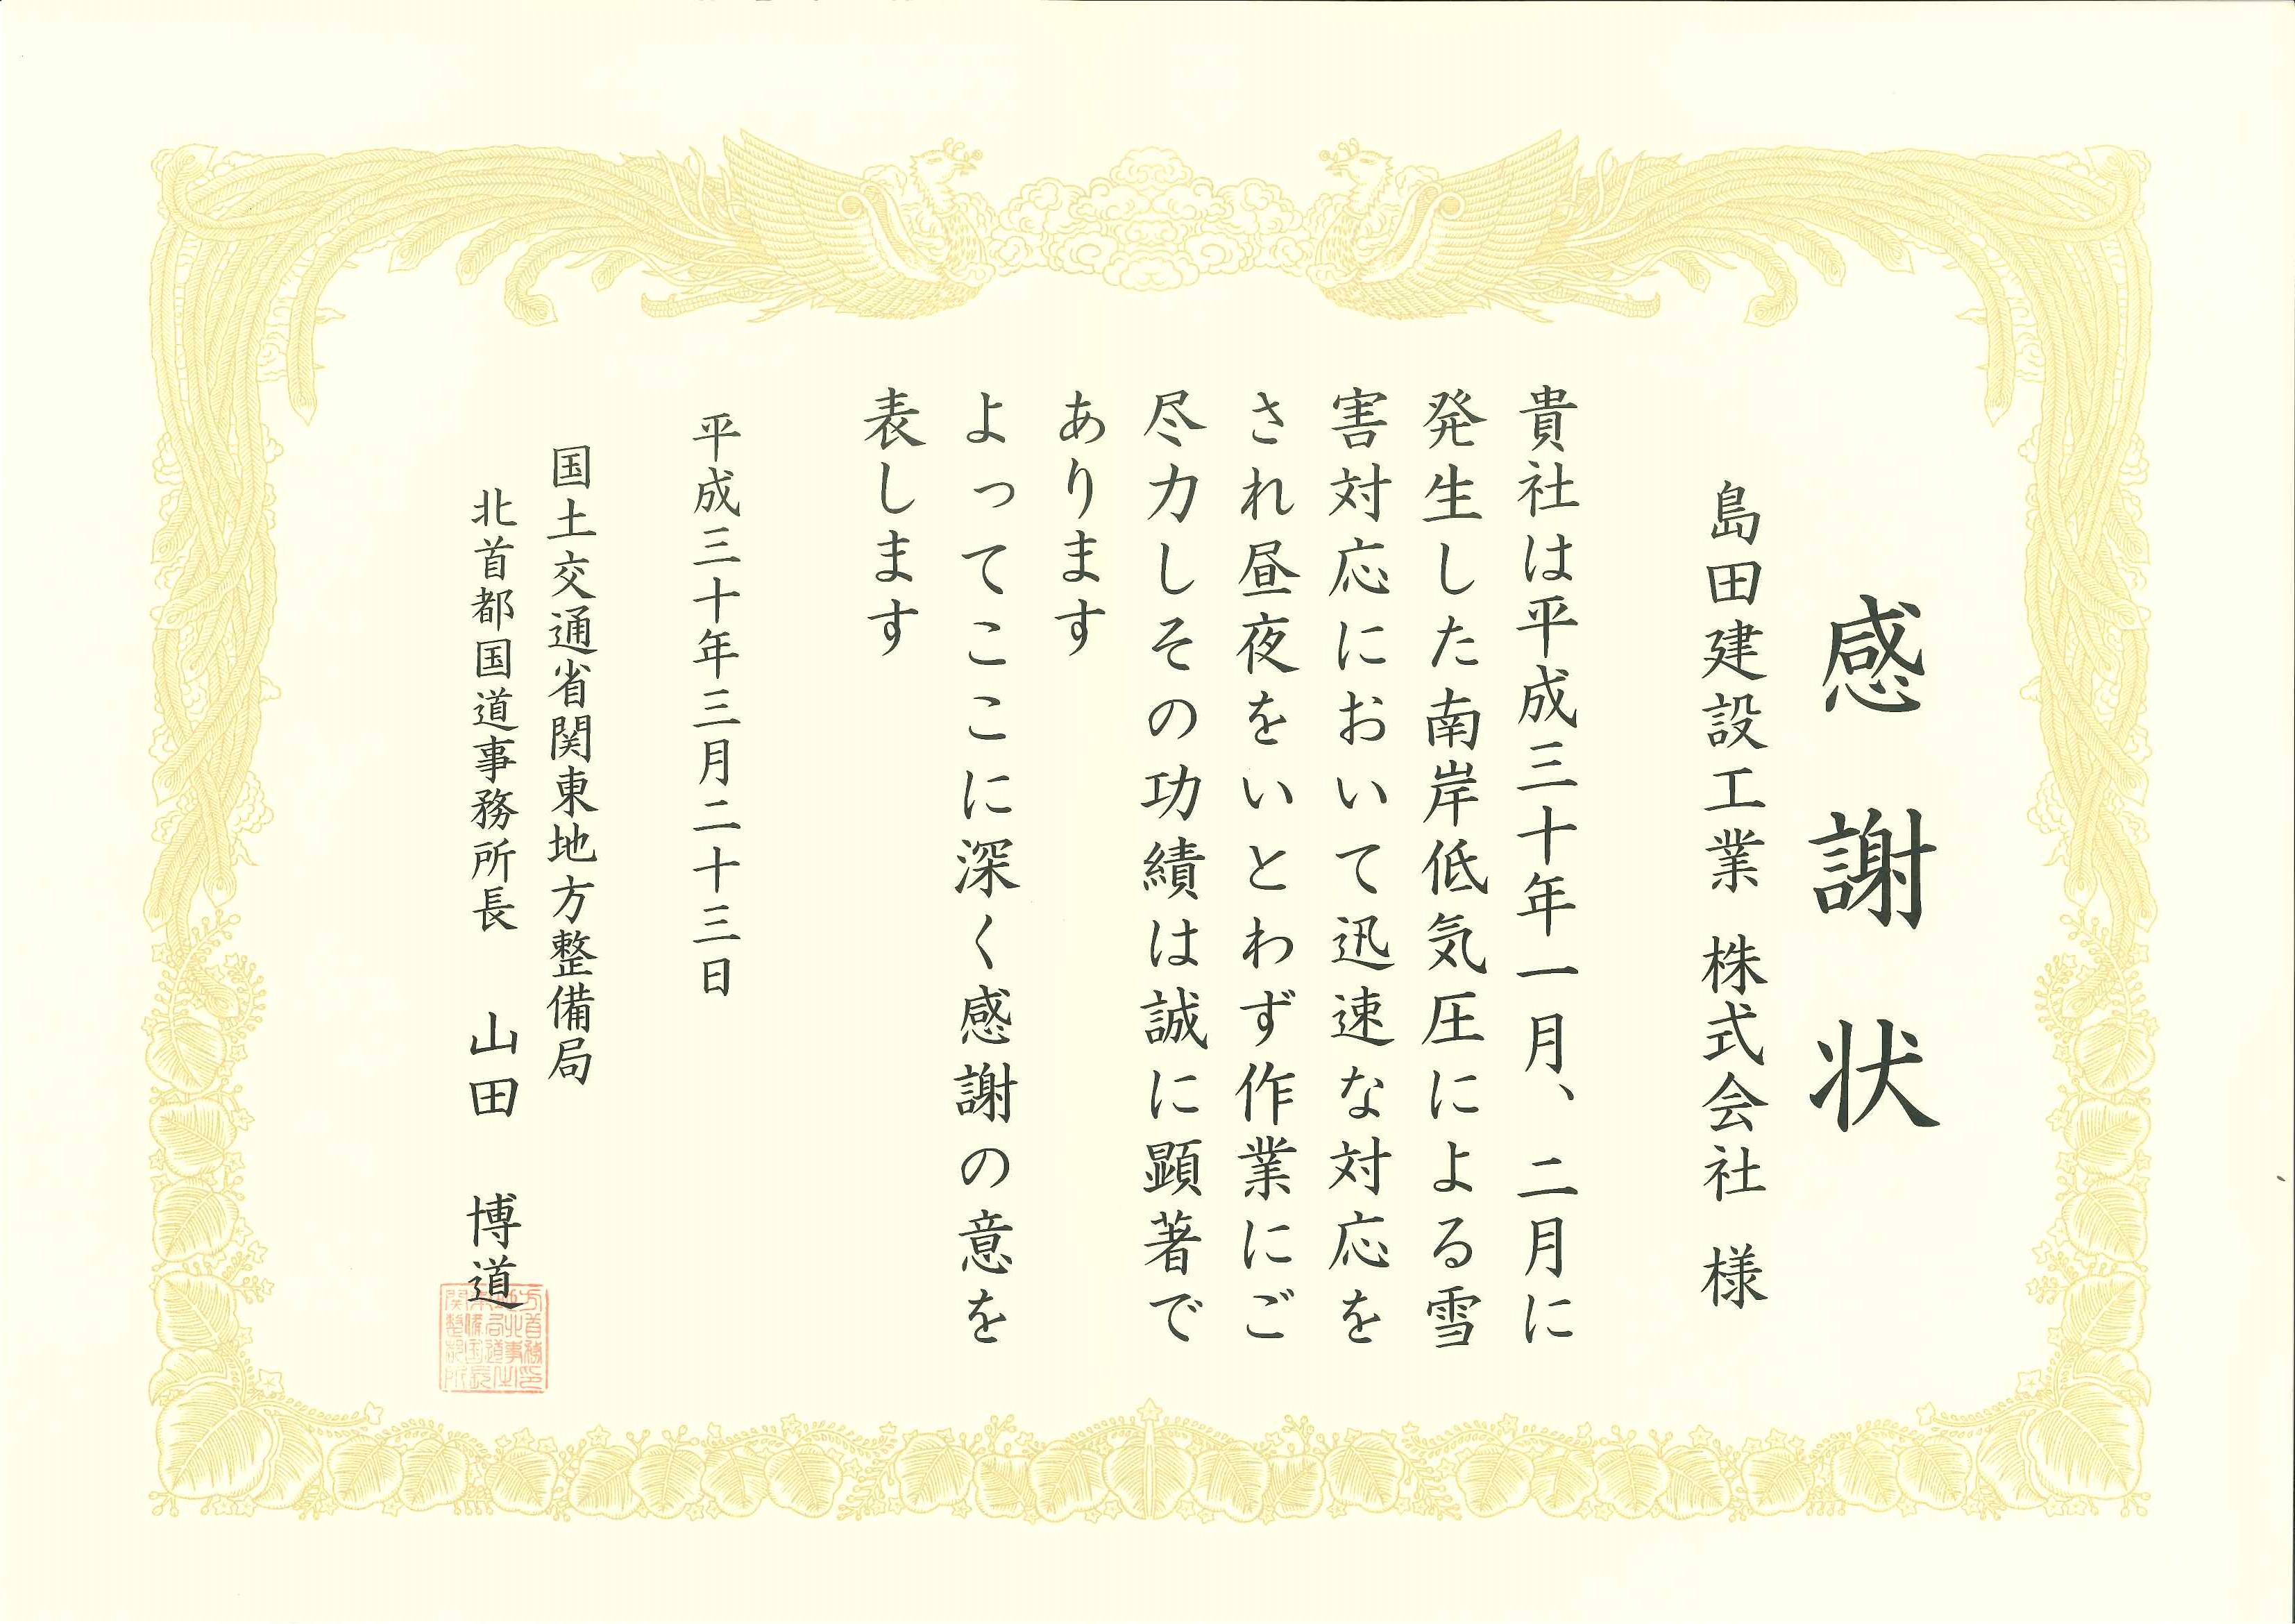 感謝状
島田建設工業 株式会社 様
貴社は平成三十年一月、二月に
発生した南岸低気圧による雪
害対応において迅速な対応を
され昼夜をいとわず作業にご
尽力しその功績は誠に顕著で
あります
よってここに深く感謝の意を
表します
平成三十年三月二十三日
国土交通省関東地方整備局
北首都国道事務所長 山田 博道